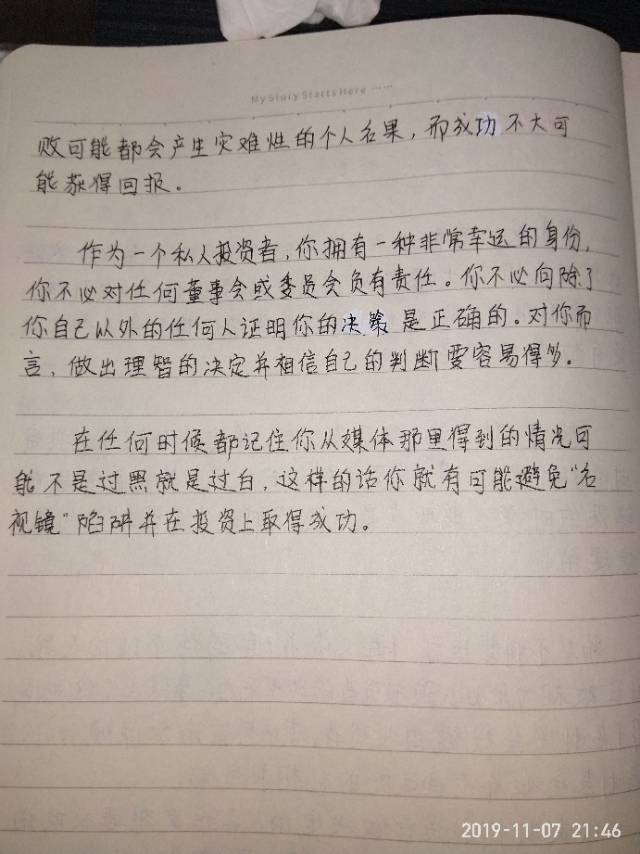 My Story Starts Here ......
败可能都会产生灾难性的个人名果，而成功不大可
能获得回报。
作为一个私人投资者，你拥有一种非常幸运的身份，
你不必对任何董事会或委员会负有责任。你不必向除了
你自己以外的任何人证明你的决策是正确的。对你而
言，做出理智的决定并相信自己的判断要容易得多。
在任何时候都记住你从媒体那里得到的情况可
能不是过黑就是过白，这样的话你就有可能避免“名
视镜”陷阱并在投资上取得成功。
2019-11-07 21:46